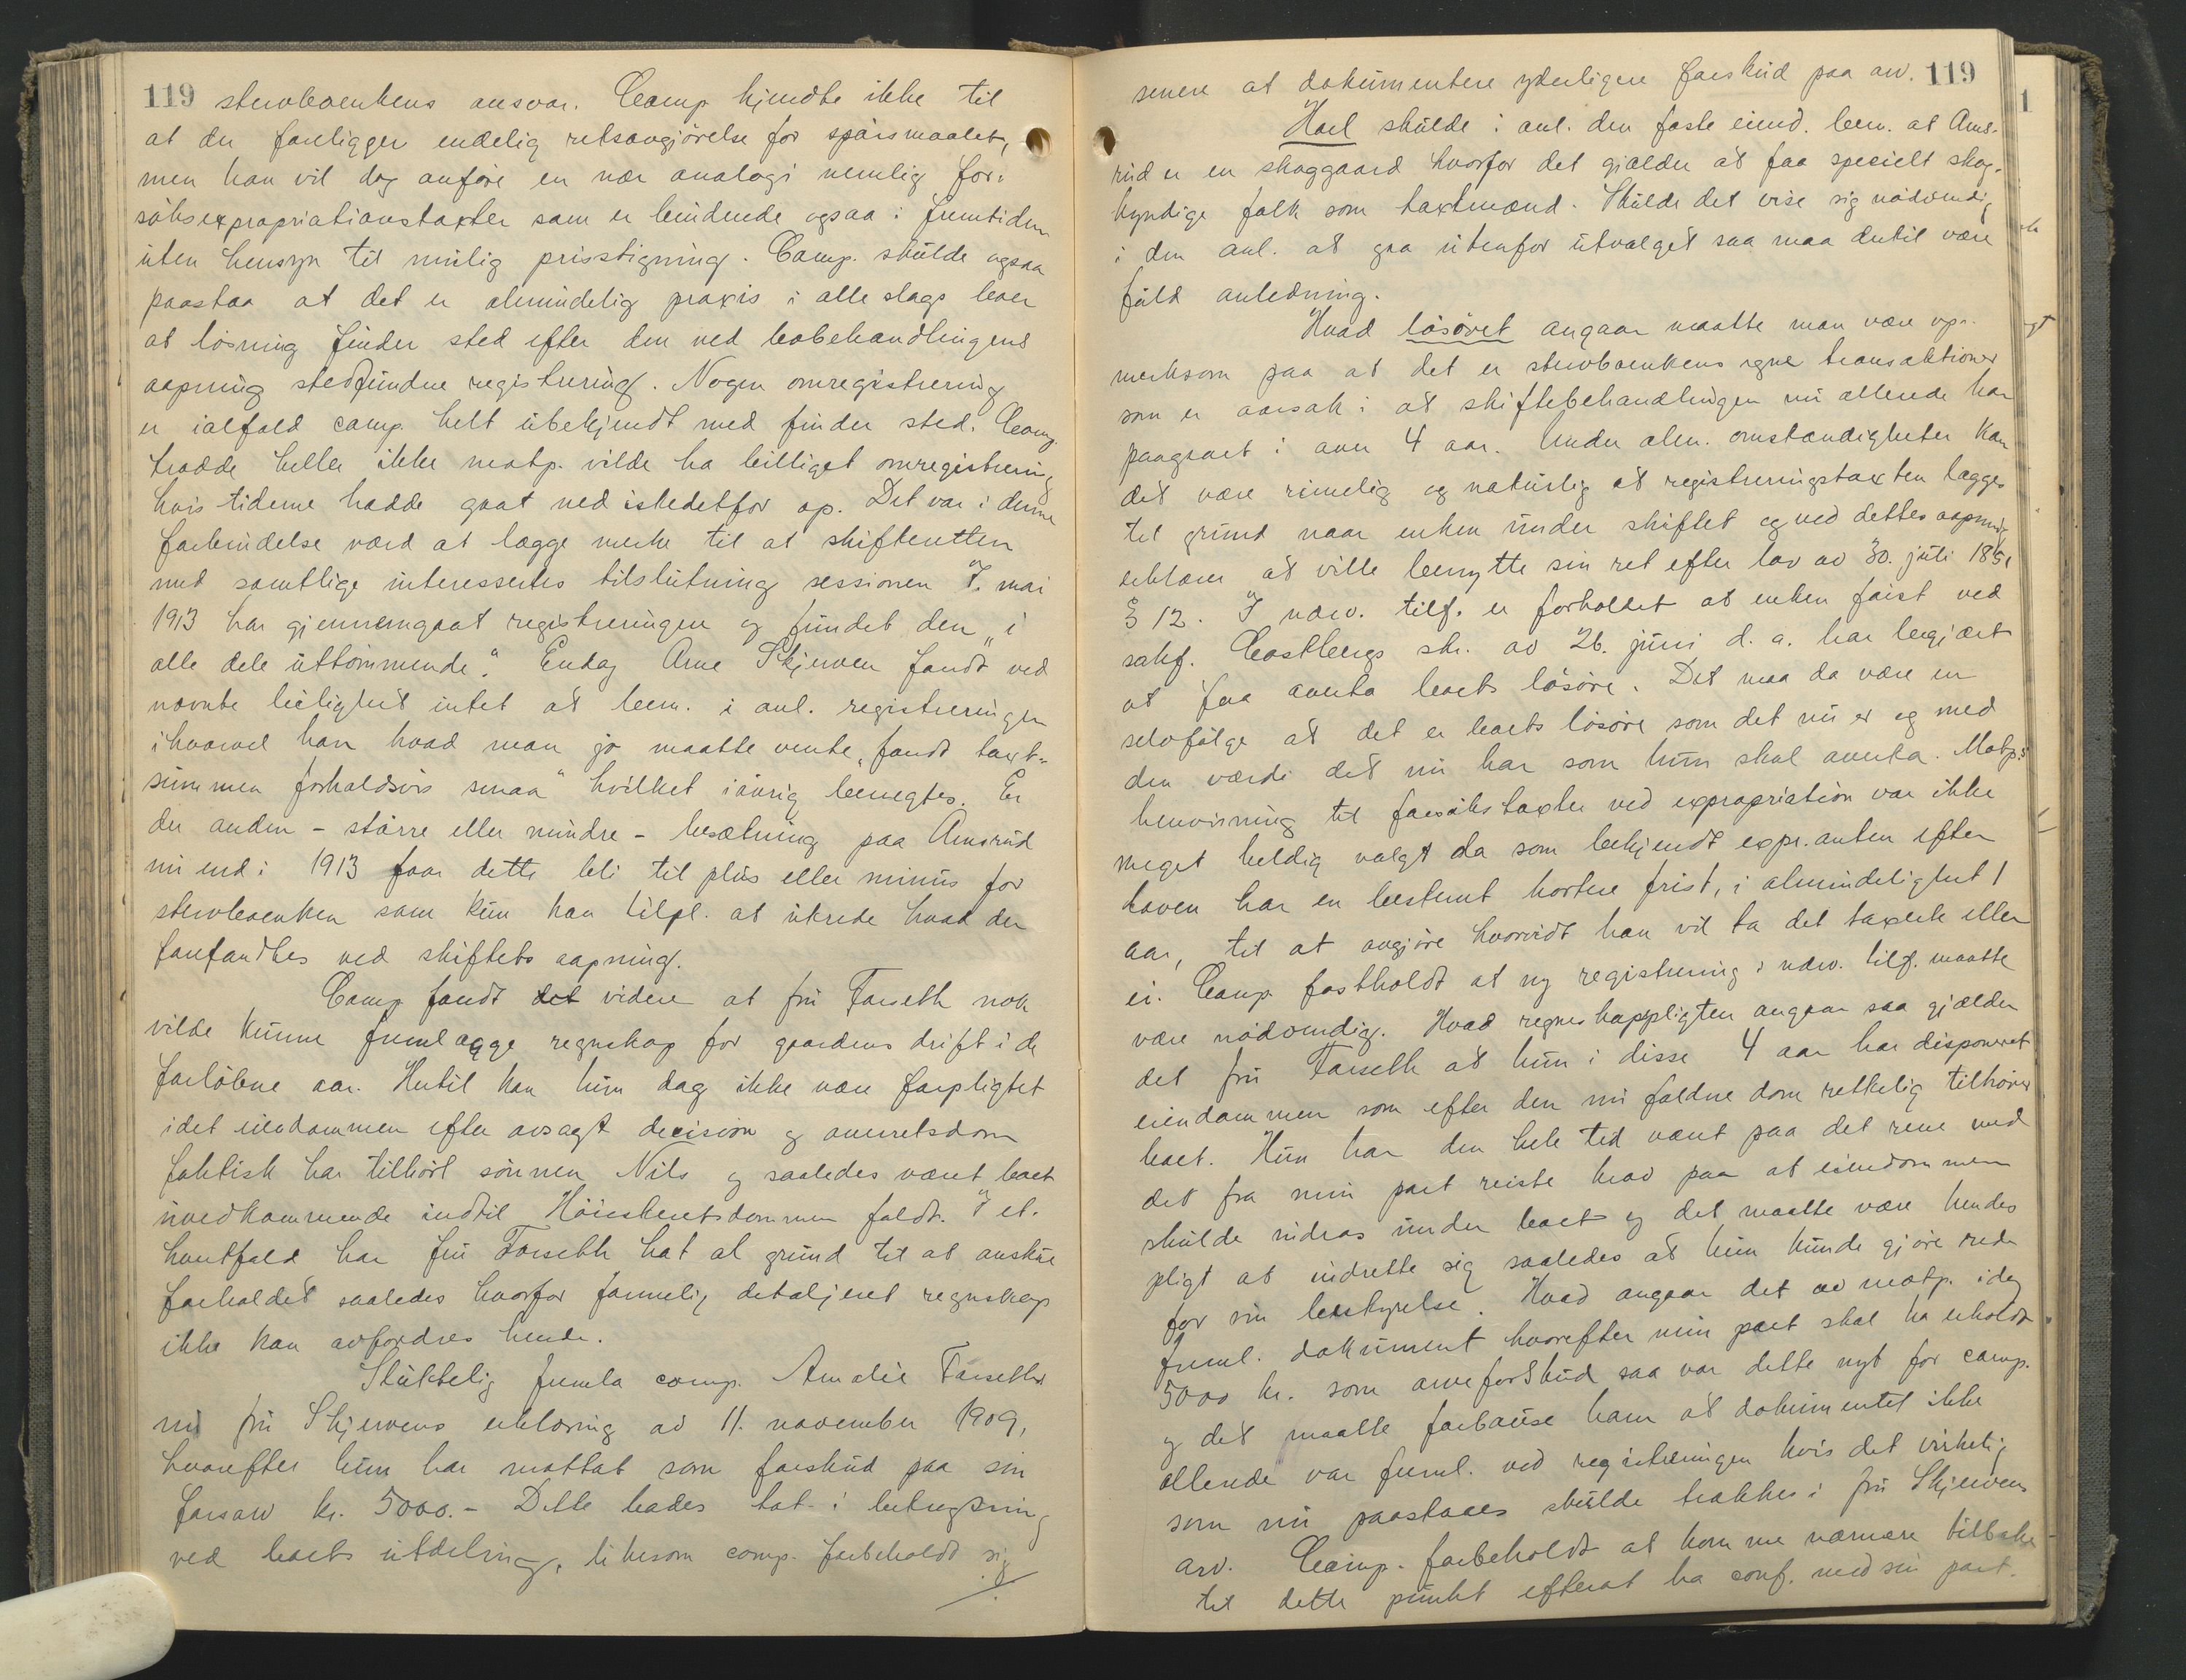 119 stervboenkens ansvar. Comp. kjendte ikke til
at der foreligger endelig retsavgjörelse for spörsmaalet,
men han vil dog anföre en nær analogi nemlig for-
söksexpropriationstaxter som er bindende ogsaa i fremtiden
uten hensyn til mulig prisstigning. Comp. skulde ogsaa
paastaa at det er almindelig praxis i alle slags boer
at lösning finder sted efter den ved bobehandlingens
aapning stedfundne registrering. Nogen omregistrering
er ialfald comp. helt ubekjendt med finder sted. Comp.
trodde heller ikke motp. vilde ha billiget omregistrering
hvis tiderne hadde gaat ned istedetfor op. Det var i denne
forbindelse værd at lægge merke til at skifteretten
med samtlige interessertes tilslutning sessionen 7. mai
1913 har gjennemgaat registreringen og fundet den "i
alle dele uttömmende". Endog Arne Skjerven fandt ved
nævnte leilighet intet at bem. i anl. registreringen
ihvorvel han hvad man jo maatte vente "fandt taxt-
summen forholdsvis smaa" hvilket iövrig benegtes. Er
der anden - större eller mindre - besætning paa Amsrud
nu end i 1913 faar dette bli til plus eller minus for
stervboenken som kun kan tilpl. at utrede hvad der
forefandtes ved skiftets aapning.
Comp. fandt det videre at fru Forseth nok
vilde kunne fremlægge regnskap for gaardens drift i de
forlöbne aar. Hertil kan hun dog ikke være forpligtet
idet eiendommen efter avsagt decision og overretsdom
faktisk har tilhört sönnen Nils og saaledes været boet
uvedkommende indtil Höiesteretsdommen faldt. I et-
hvertfald har fru Forseth hat al grund til at anskue
forholdet saaledes hvorfor formelig detaljeret regnskap
ikke kan avfordres hende.
Sluttelig fremla comp. Amalie Forseths
nu fru Skjervens erklæring av 11. november 1909,
hvorefter hun har mottat som forskud paa sin
farsarv kr. 5000.- Dette bades tat i betragtning
ved boets utdeling, likesom comp. forbeholdt sig
senere at dokumentere yderligere forskud paa arv. 119
Hoel skulde i anl. den faste eiend. bem. at Ams-
rud er en skoggaard hvorfor det gjælder at faa specielt skog-
kyndige folk som taxtmænd. Skulde det vise sig nödvendig
i den anl. at gaa utenfor utvalget saa maa dertil være
fuld anledning.
Hvad lösöret angaar maatte man være op-
merksom paa at det er stervboenkens egne transaktioner
som er aarsak i at skiftebehandlingen nu allerede har
paagaaet i over 4 aar. Under alm. omstændigheter kan
det være rimelig og naturlig at registreringstaxten lægges
til grund naar enken under skiftet og ved dettes aapning
erklærer at ville benytte sin ret efter lov av 30. juli 1851
§ 12. I nærv. tilf. er forholdet at enken först ved
sakf. Castbergs skr. av 26. juni d. a. har begjært
at faa overta boets lösöre. Det maa da være en
selvfölge at det er boets lösöre som det nu er og med
den værdi det nu har som hun skal overta. Motp.s
henvisning til forsökstaxter ved expropriation var ikke
meget heldig valgt da som bekjendt expr.anten efter
loven har en bestemt kortere frist, i almindelighet 1
aar, til at avgjöre hvorvidt han vil ta det taxerte eller
ei. Comp. fastholdt at ny registrering i nærv. tilf. maatte
være nödvendig. Hvad regnskapspligten angaar saa gjælder
det fru Forseth at hun i disse 4 aar har disponeret
eiendommen som efter den nu faldne dom rettelig tilhörer
boet. Hun har den hele tid været paa det rene med
det fra min part reiste krav paa at eiendommen
skulde inddras under boet og det maatte være hendes
pligt at indrette sig saaledes at hun kunde gjöre rede
for sin bestyrelse. Hvad angaar det av motp. idag
freml. dokument hvorefter min part skal ha erholdt
5000 kr. som arveforskud saa var dette nyt for comp.
og det maatte forbause ham at dokumentet ikke
allerede var freml. ved registreringen hvis det virkelig
som nu paastaaes skulde trækkes i fru Skjervens
arv. Comp. forbeholdt at komme nærmere tilbake
til dette punkt efterat ha conf. med sin part.